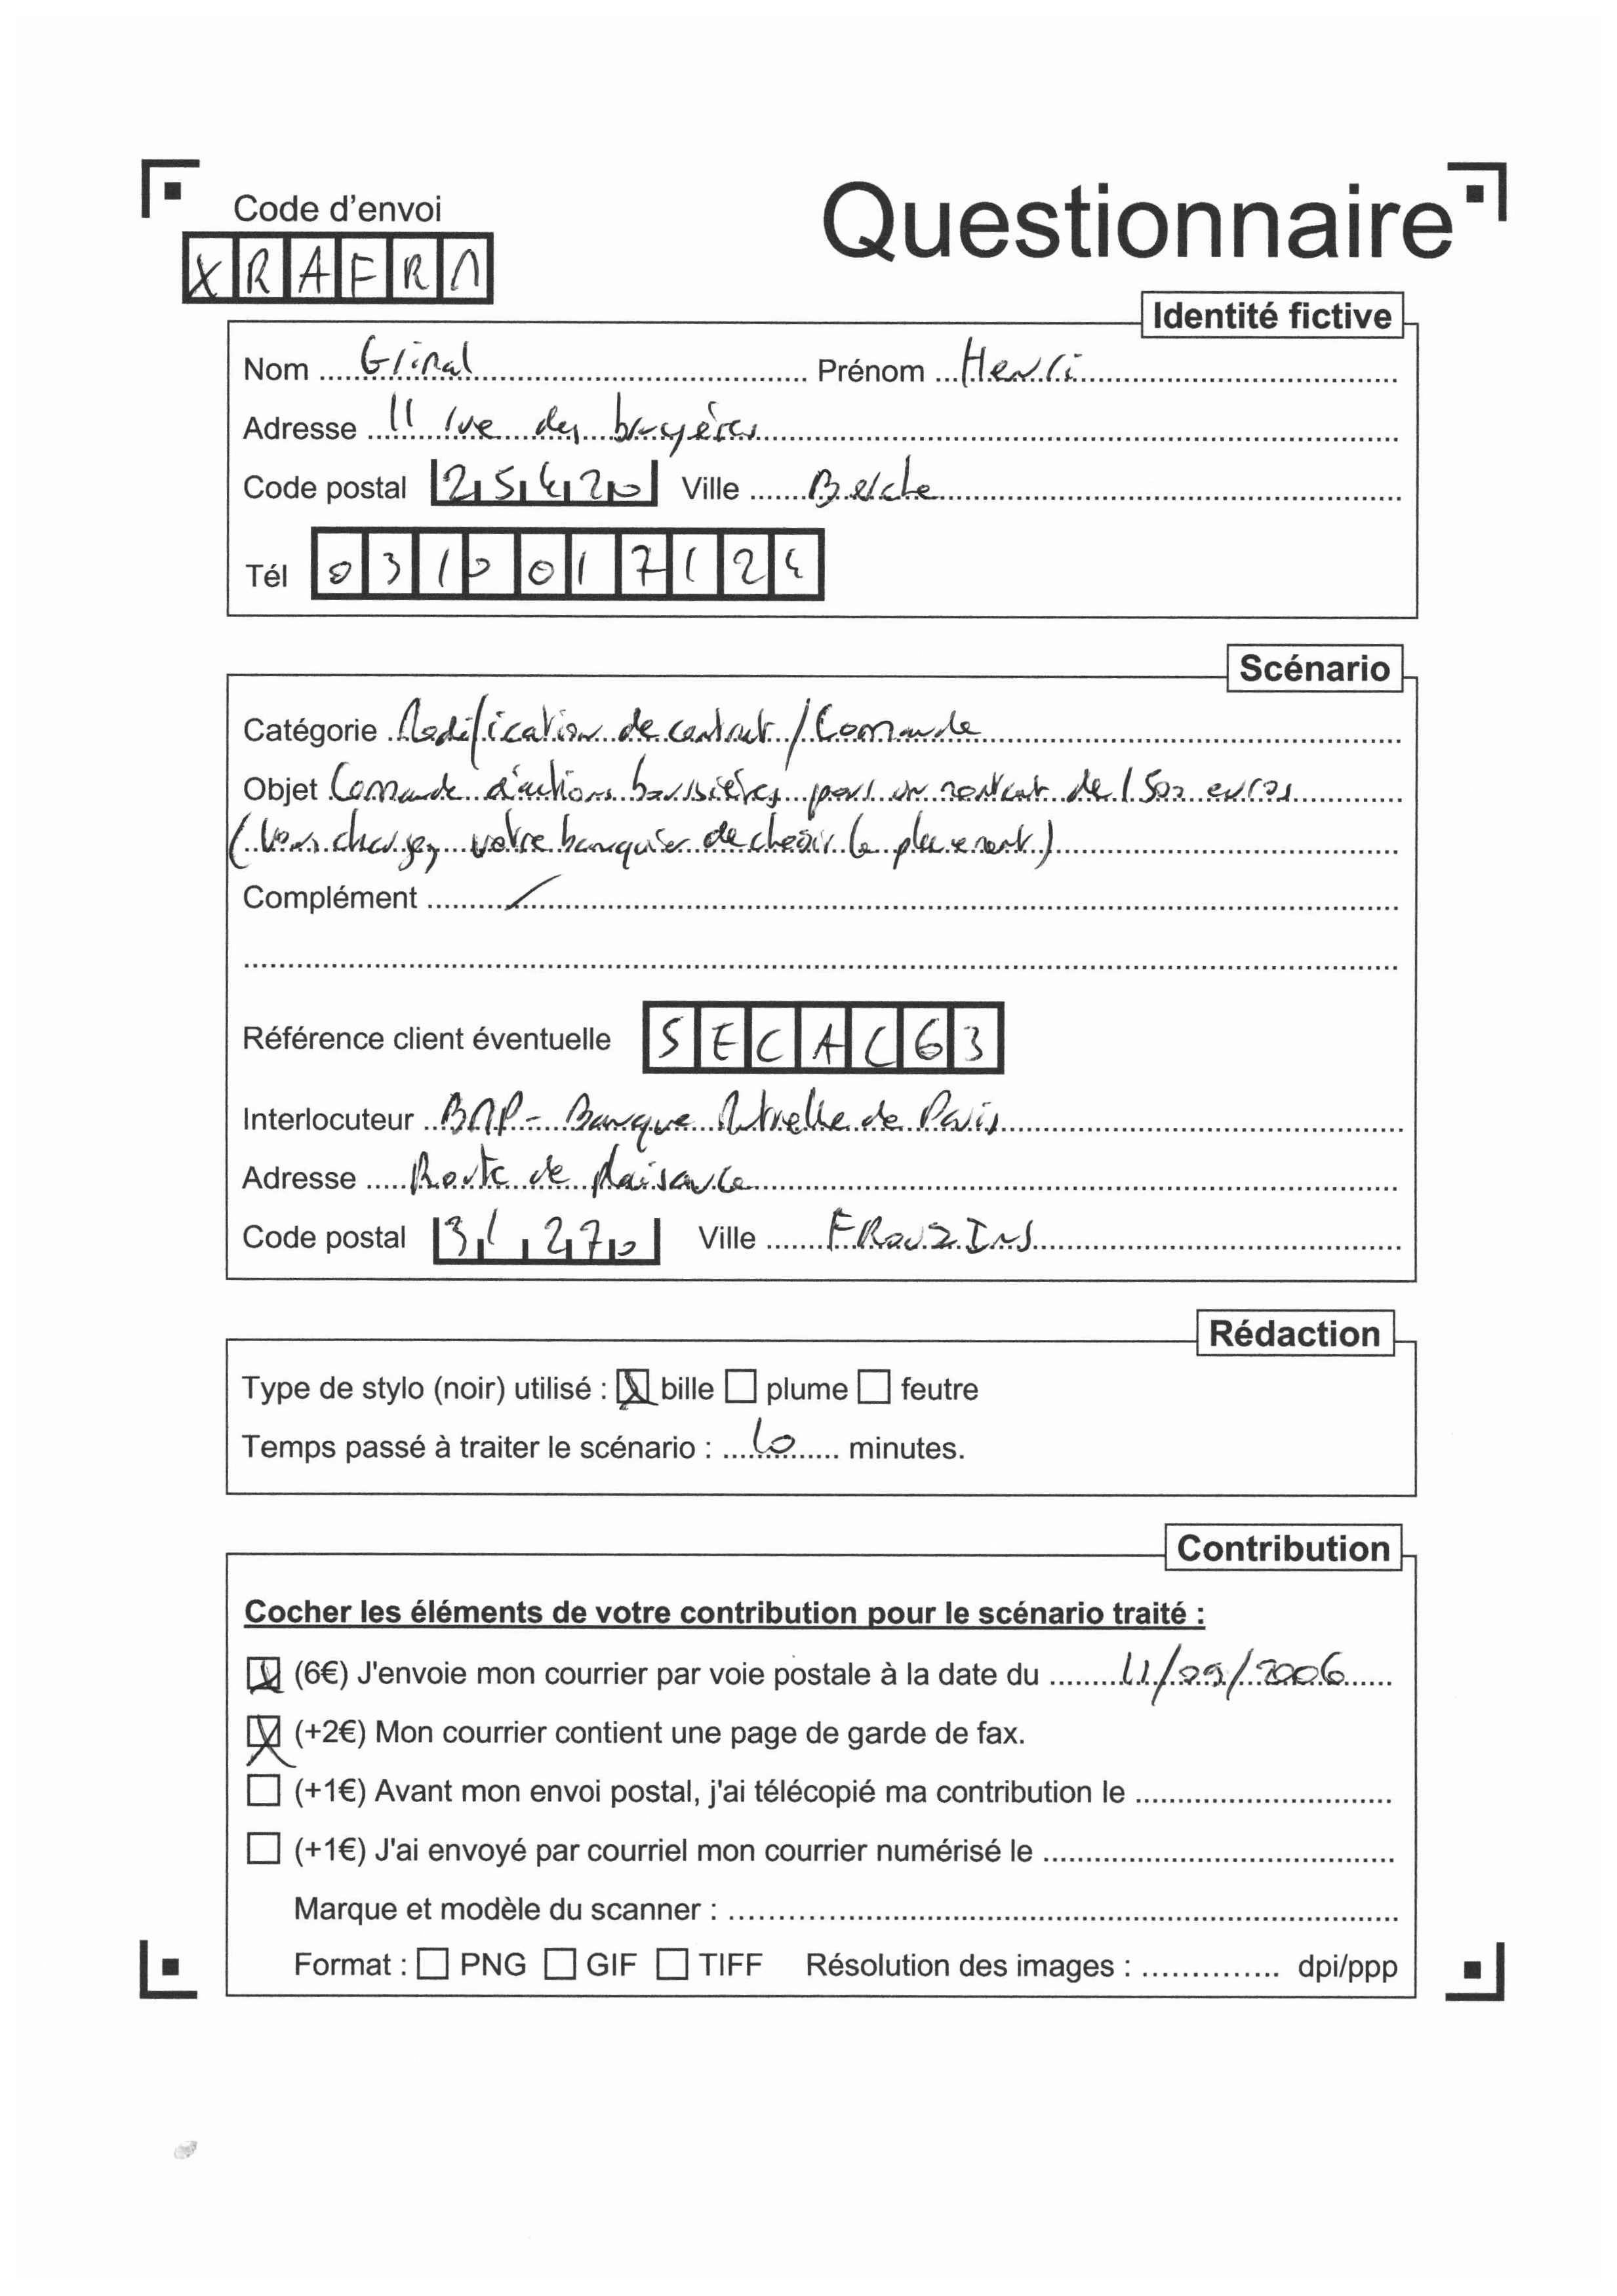 Code d'envoi
Questionnaire
XRAFRM
Identité fictive
Nom Grinal Prénom Henri
Adresse 11 rue des bruyères
Code postal 25420 Ville Berche
Tél 0310017124
Scénario
Catégorie Modification de contrat / Commande
Objet Commande d'actions boursières pour un montant de 1500 euros
(Vous chargez votre banquier de choisir le placement)
Complément /
Référence client éventuelle SECAC63
Interlocuteur BMP - Banque Mutuelle de Paris
Adresse Route de plaisance
Code postal 31270 Ville FROUZINS
Rédaction
Type de stylo (noir) utilisé : bille plume feutre
Temps passé à traiter le scénario : 10 minutes.
Contribution
Cocher les éléments de votre contribution pour le scénario traité :
(6€) J'envoie mon courrier par voie postale à la date du 11/09/2006
(+2€) Mon courrier contient une page de garde de fax.
(+1€) Avant mon envoi postal, j'ai télécopié ma contribution le
(+1€) J'ai envoyé par courriel mon courrier numérisé le
Marque et modèle du scanner :
Format : PNG GIF TIFF Résolution des images : dpi/ppp